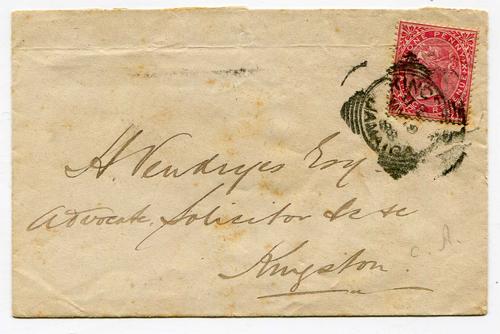 ONE PENNY
KINGSTON
JAMAICA
H. Vendryes Esq
Advocate. Solicitor &c &c
Kingston.
C. A.